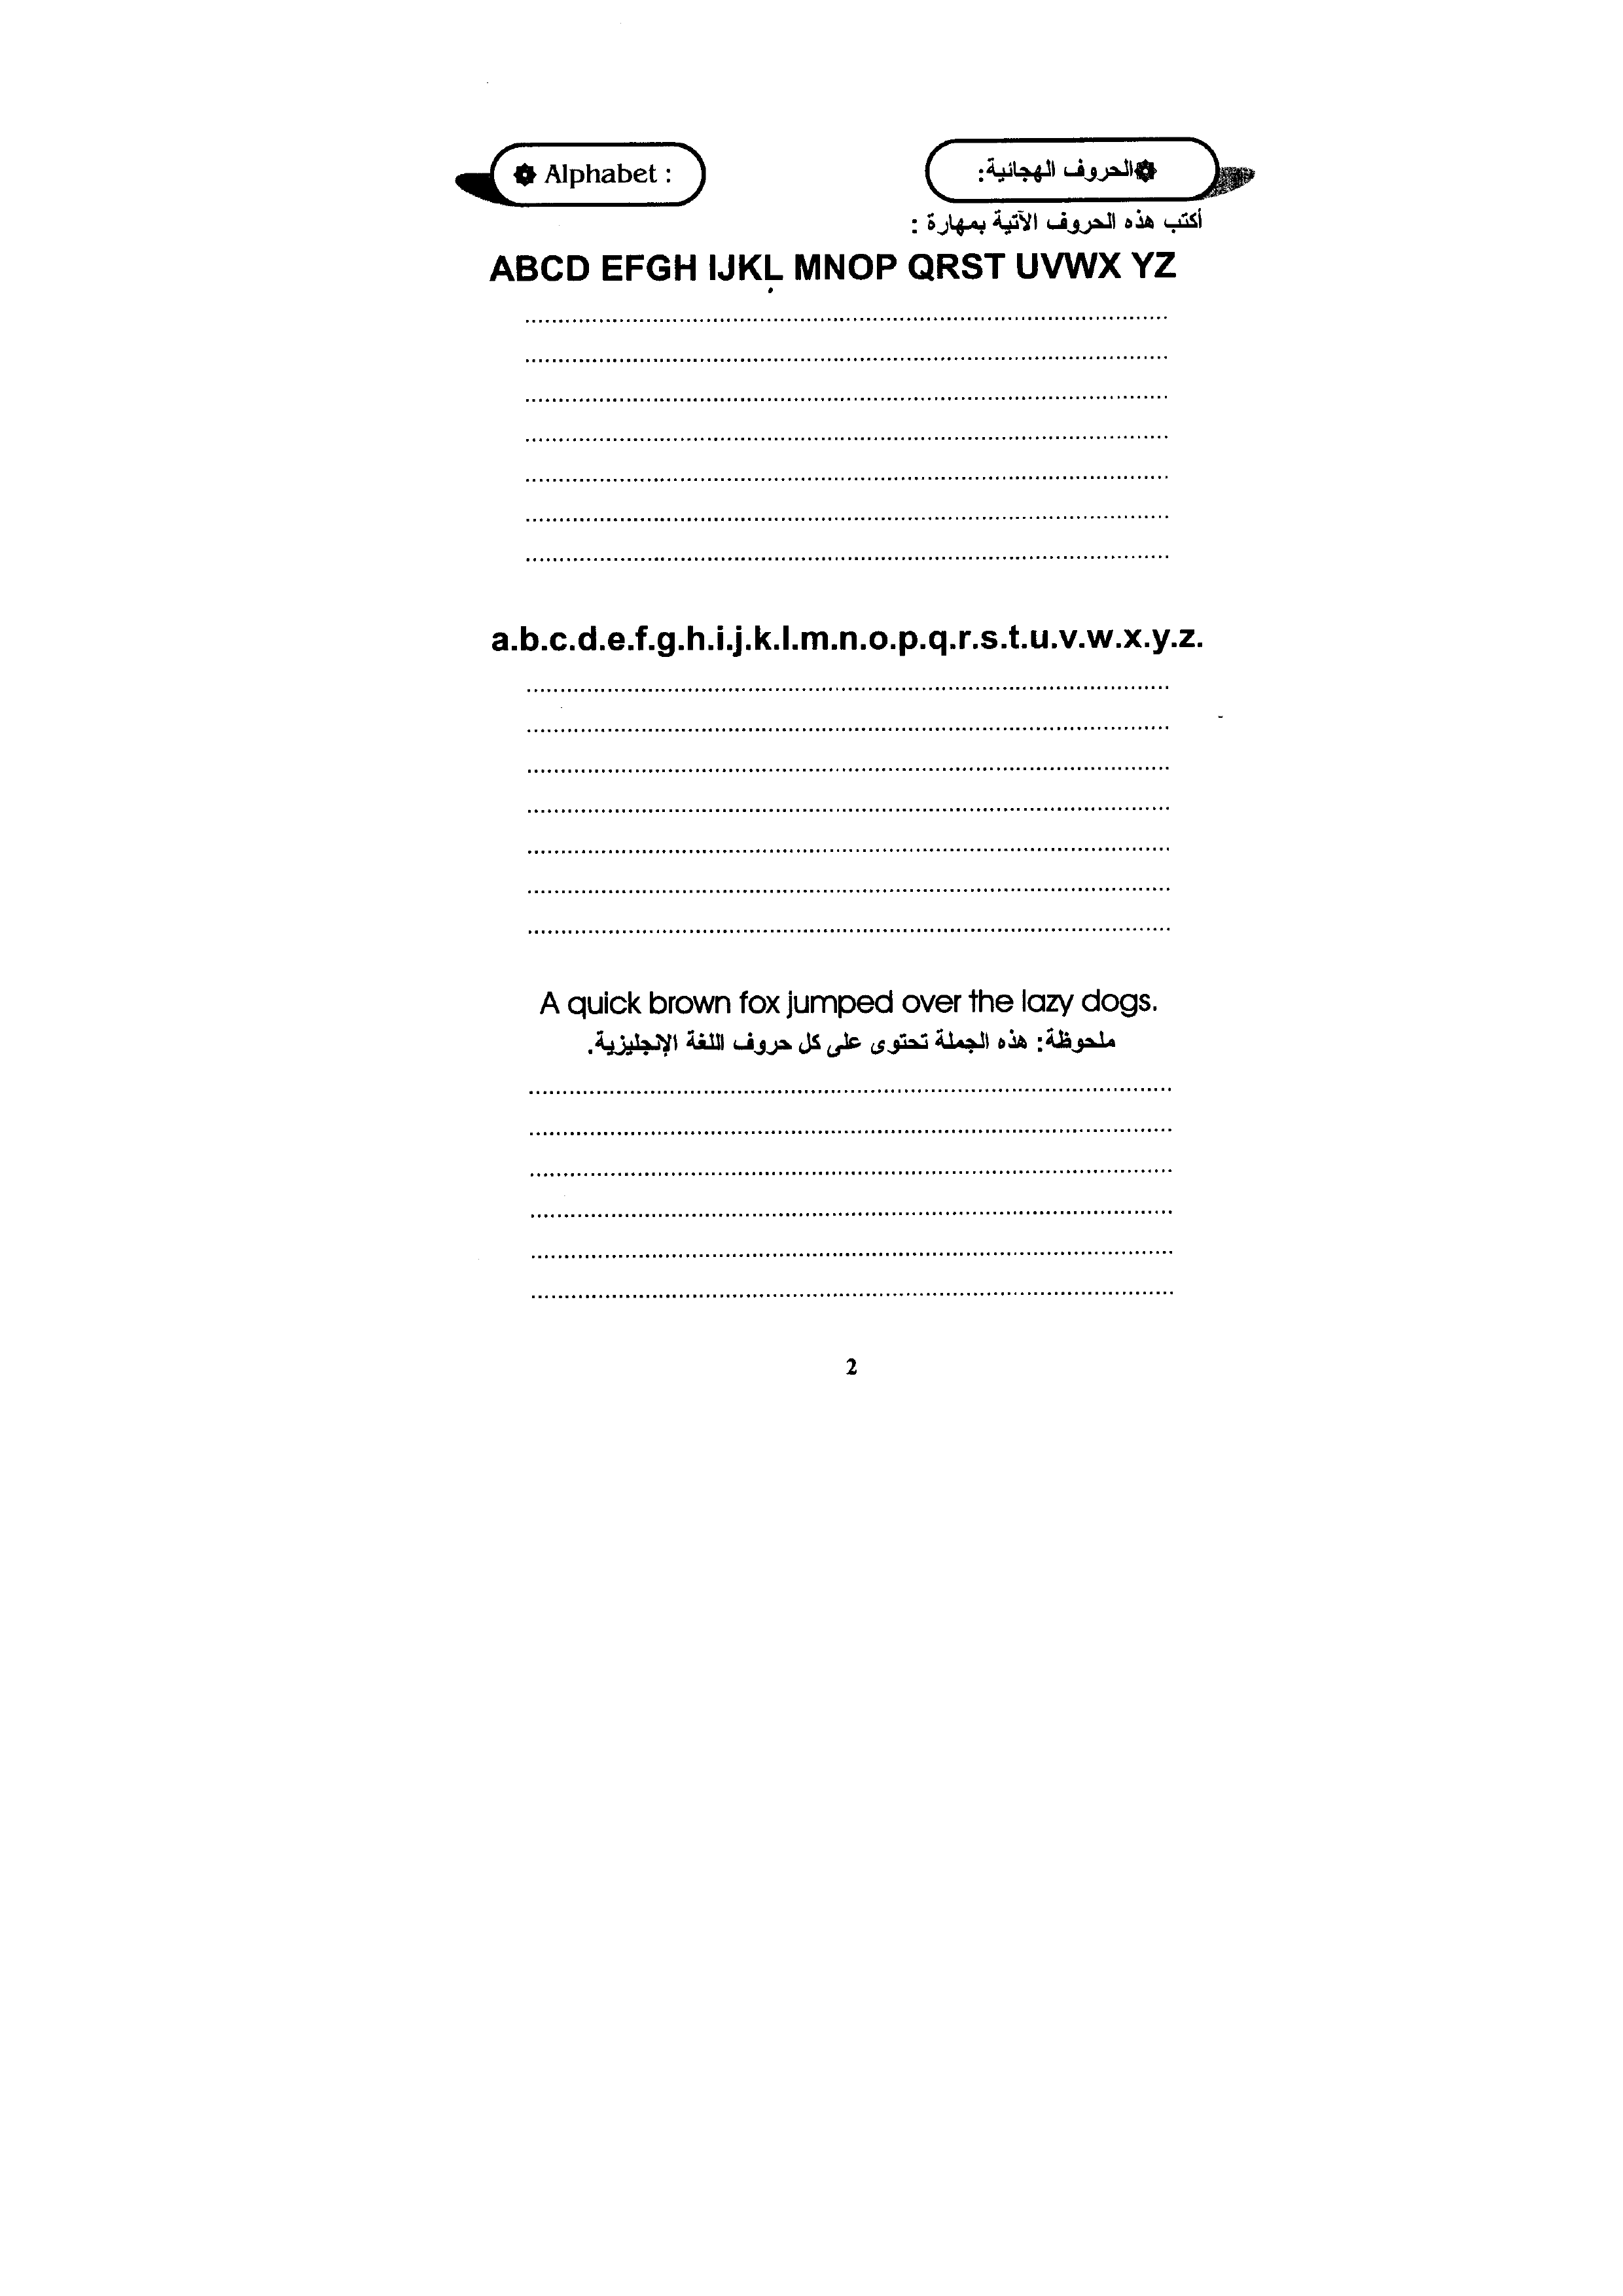 Alphabet :
الحروف الهجائية:
أكتب هذه الحروف الآتية بمهارة :
ABCD EFGH IJKL MNOP QRST UVWX YZ
a.b.c.d.e.f.g.h.i.j.k.l.m.n.o.p.q.r.s.t.u.v.w.x.y.z.
A quick brown fox jumped over the lazy dogs.
ملحوظة: هذه الجملة تحتوى على كل حروف اللغة الإنجليزية.
2